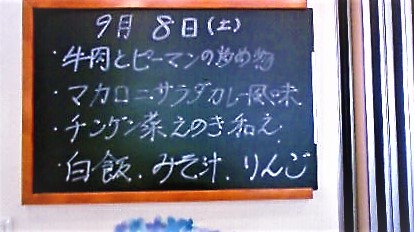 9月8日(土)
・牛肉とピーマンの炒め物
・マカロニサラダカレー風味
・チンゲン菜えのき和え
・白飯.みそ汁.りんご